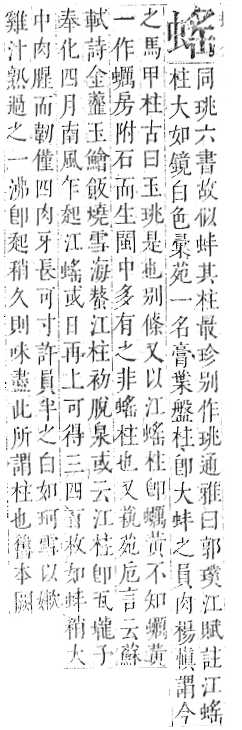 蜬
同珧六書故似蚌其柱最珍别作珧通雅曰郭璞江賦註江蜬
柱大如鏡白色彙苑一名膏葉盤柱卽大蚌之員肉楊愼謂今
之馬甲柱古曰玉珧是也别條又以江蜬柱卽蠣黃不知蠣黃
一作蠣房附石而生閩中多有之非蜬柱也又藝苑巵言云蘇
軾詩金虀玉鱠飯燒雪海螯江柱初脫泉或云江柱卽瓦壠子
奉化四月南風乍起江蜬或日再上可得三四百枚如蚌稍大
中肉腥而韌僅四肉牙長可寸許員半之白如珂雪以嫩
雞汁熟過之一沸卽起稍久則味盡此所謂柱也舊本闕